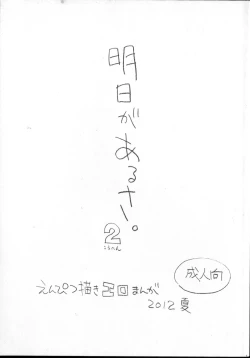 明日があるさ。
2
こうへん
成人向
えんぴつ描き呂回まんが
2012夏